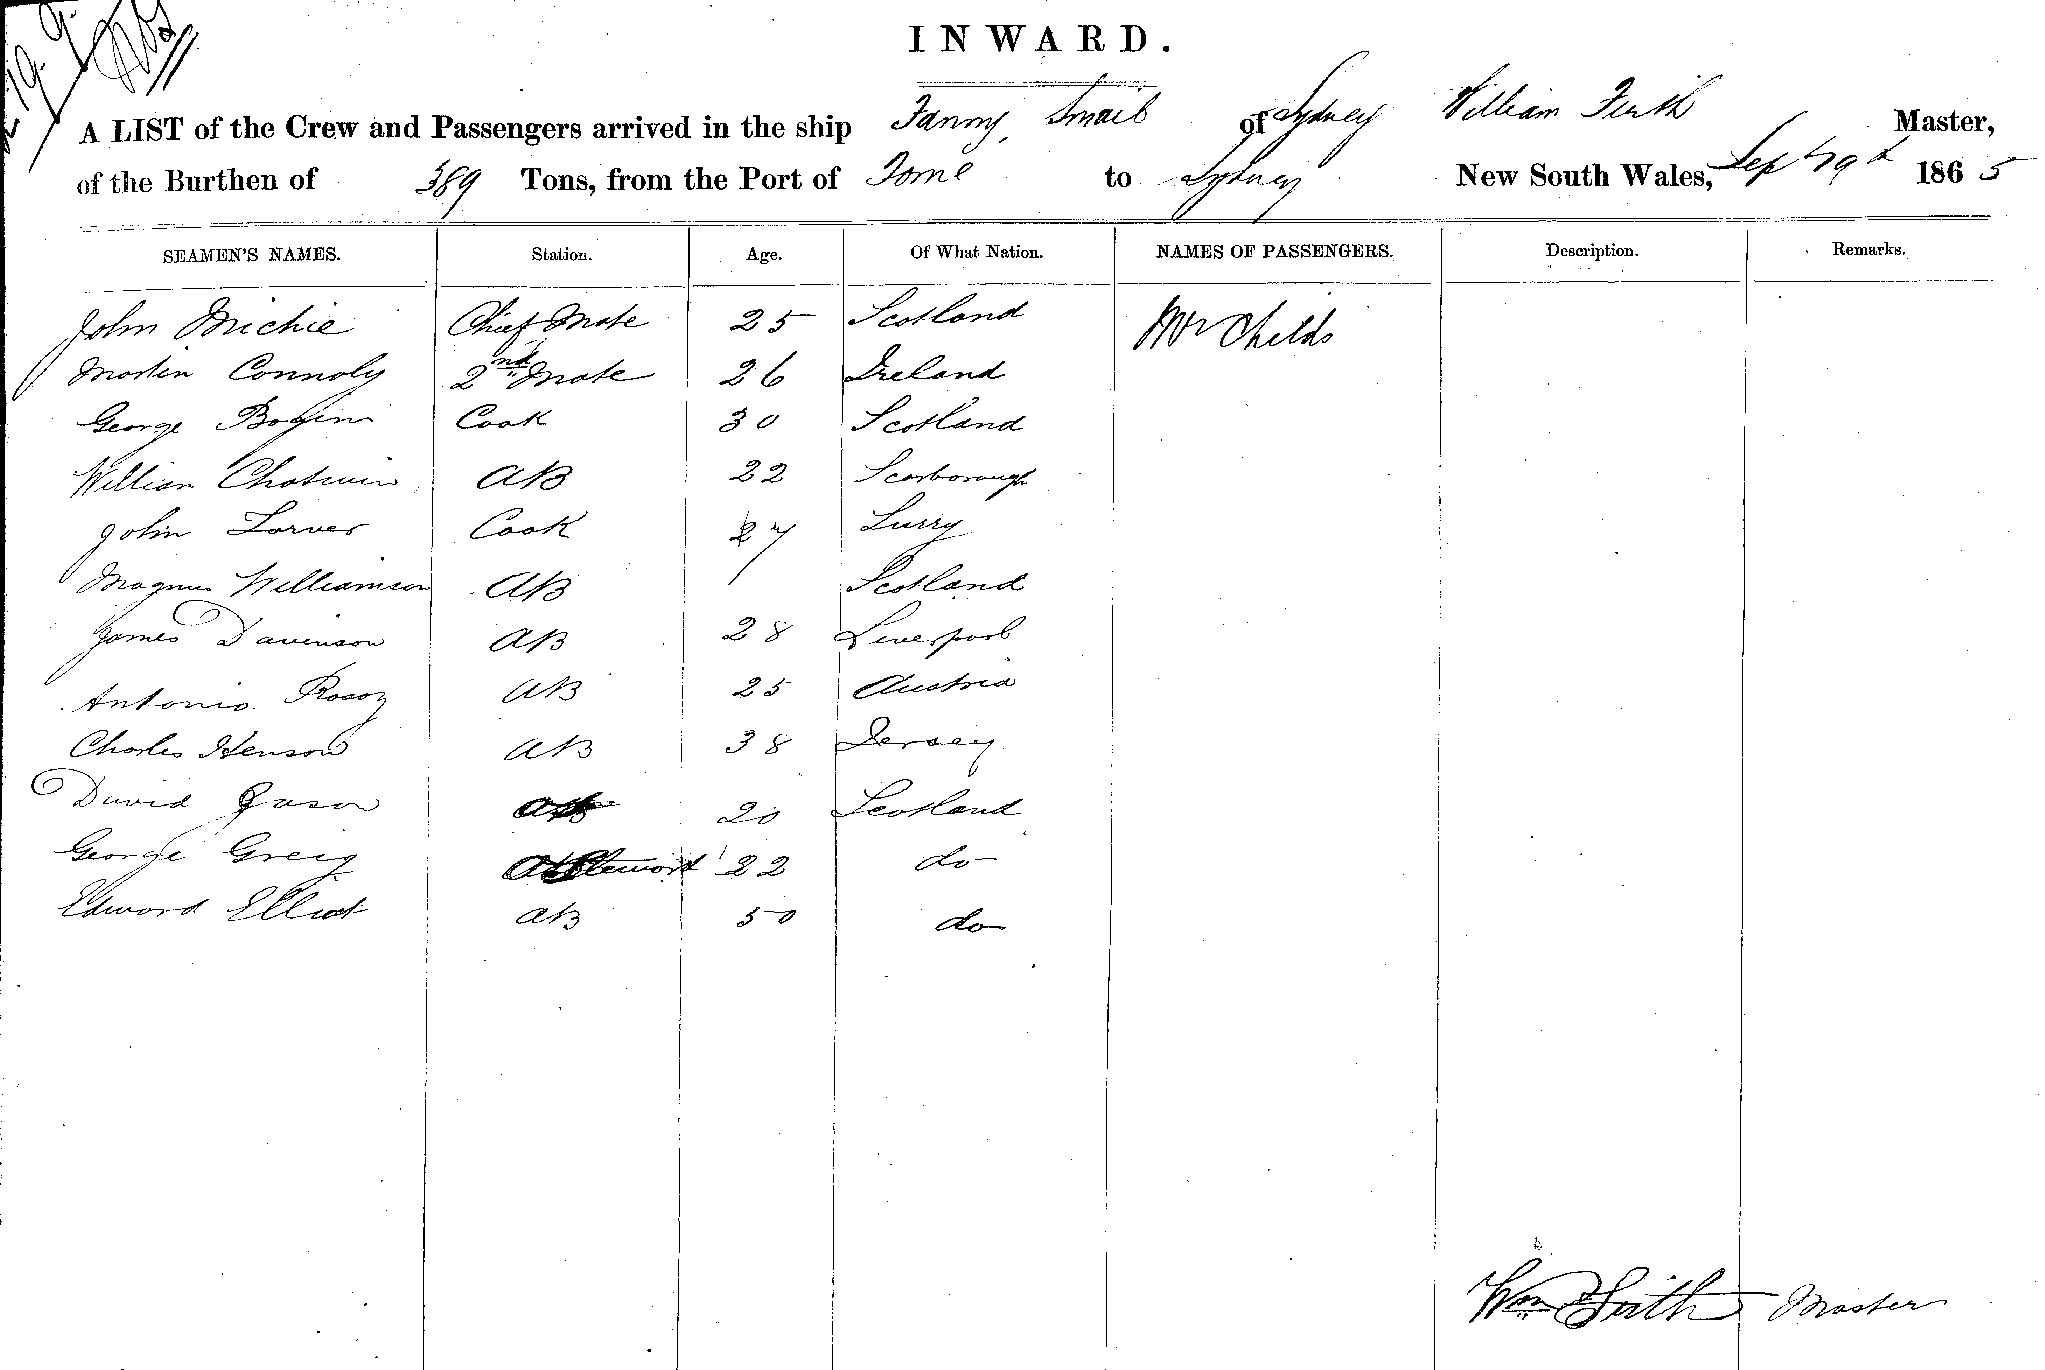 19. 9.
INWARD.
A LIST of the Crew and Passengers arrived in the ship Fanny Smail of Sydney William Firth Master,
of the Burthen of 389 Tons, from the Port of Tome to Sydney New South Wales, Sept 19th 1865
SEAMEN'S NAMES. Station. Age. Of What Nation. NAMES OF PASSENGERS. Description. Remarks.
John Michie Chief Mate 25 Scotland Mr Childs
Martin Connoly 2nd Mate 26 Ireland
George Cook 30 Scotland
William Chatwin AB 22 Scarborough
John Cook 27 Surry
Magnus Williamson AB Scotland
James Davinson AB 28 Liverpool
Antonio AB 25 Austria
Charles Henson AB 38 Jersey
David 20 Scotland
George Greig Stewart 22 do
Edward Elliot AB 50 do
Wm Firth Master